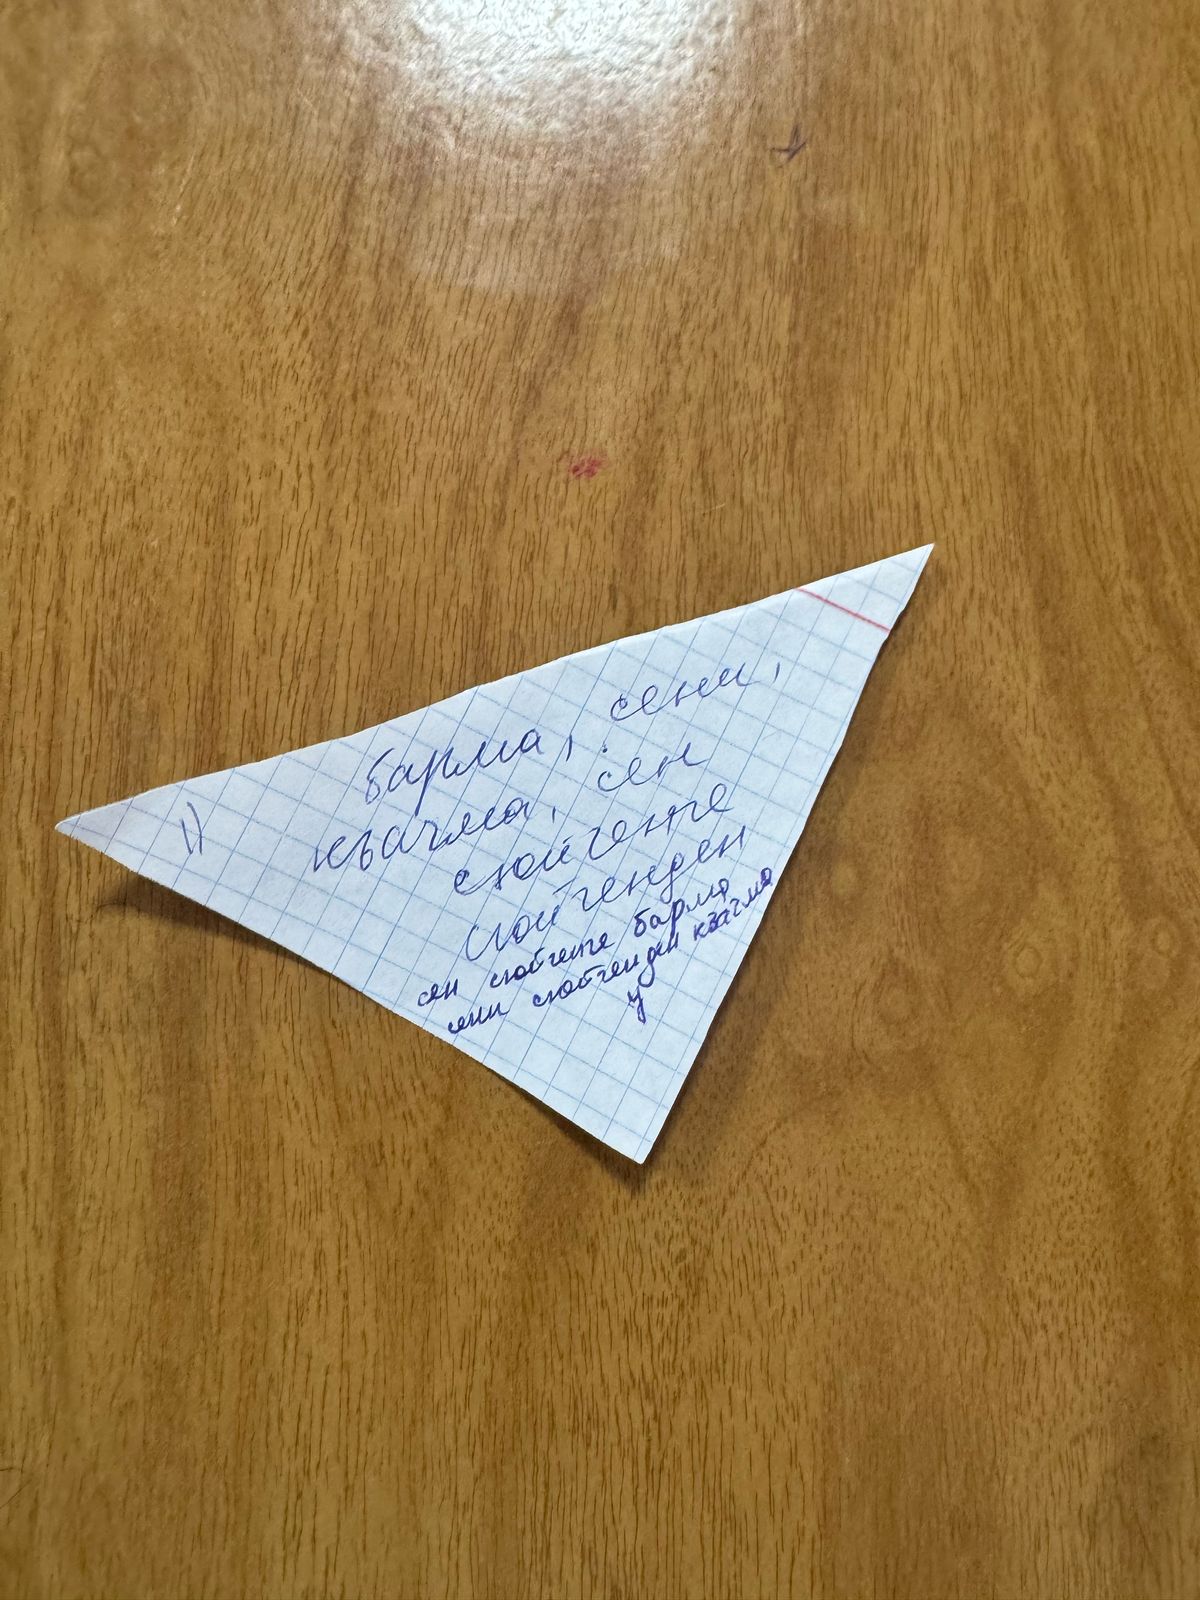 1) барма, сени,
къачма, сен
сюйгенге
сюйгенден
сен сюйгенге барма
сени сюйгенден къачма
у